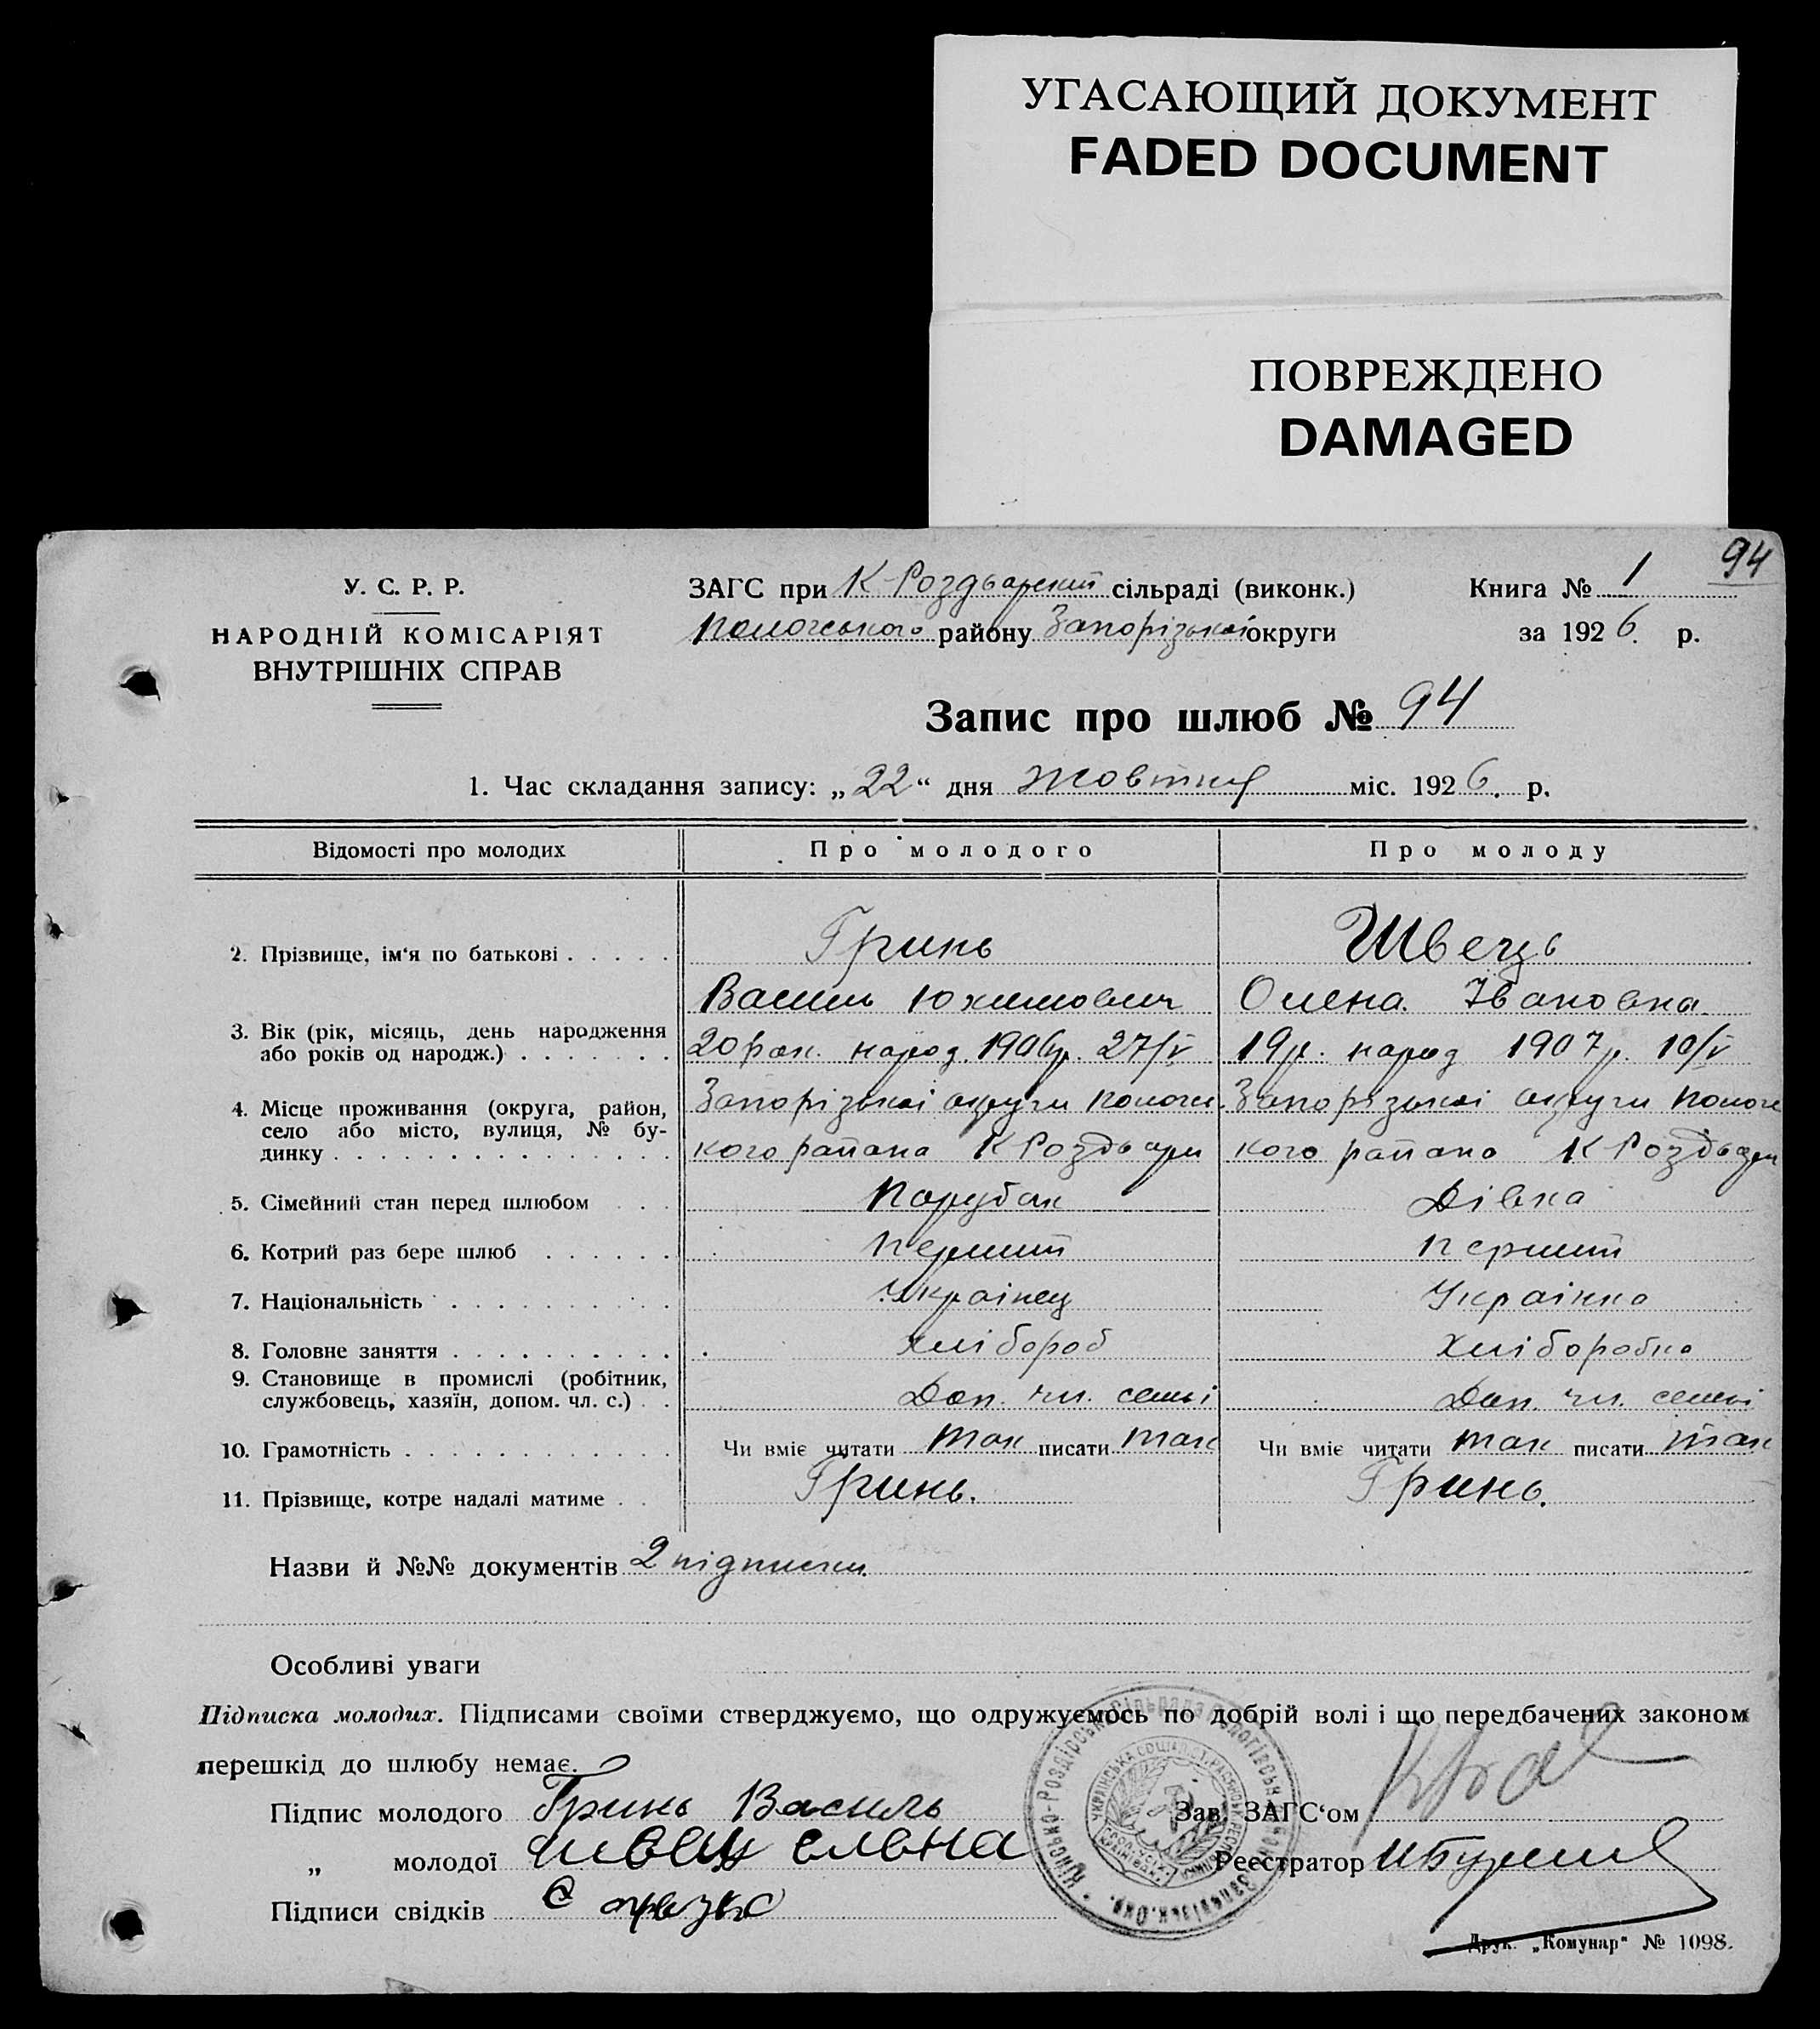 УГАСАЮЩИЙ ДОКУМЕНТ
FADED DOCUMENT
ПОВРЕЖДЕНО
DAMAGED
94
У. С. Р. Р.
НАРОДНІЙ КОМІСАРІЯТ
ВНУТРІШНІХ СПРАВ
ЗАГС при К-Роздьарский сільраді (виконк.)
Пологського району Запорізькоі округи
Книга № 1
за 1926. р.
Запис про шлюб № 94
1. Час складання запису: „22“ дня Жовтня міс. 1926. р.
Відомості про молодих Про молодого Про молоду
2. Прізвище, ім‘я по батькові . . . . . Гринь Швець
Василь Юхимович Олена Івановна.
3. Вік (рік, місяць, день народження
або років од народж.) . . . . . . . 20 рок. народ. 1906р. 27/V 19р. народ 1907р. 10/V
4. Місце проживання (округа, район,
село або місто, вулиця, № бу-
динку . . . . . . . . . . . . . . .
Запорізькоі округи Пологс Запорізькоі округи Пологс
кого района К Роздьари кого района К Роздьари
5. Сімейний стан перед шлюбом . . . Парубок Дівка
6. Котрий раз бере шлюб . . . . . . Перший Перший
7. Національність . . . . . . . . . . Украінец Украінка
8. Головне заняття . . . . . . . . . . Хлібороб Хліборобка
9. Становище в промислі (робітник,
службовець, хазяїн, допом. чл. с.) . . Доп. чл. семьі Доп. чл. семьі
10. Грамотність . . . . . . . . . . . . Чи вміє читати так писати так Чи вміє читати так писати так
11. Прізвище, котре надалі матиме . . Гринь. Гринь.
Назви й №№ документів 2 підписки.
Особливі уваги
Підписка молодих. Підписами своїми стверджуємо, що одружуємось по добрій волі і що передбачених законом
перешкід до шлюбу немає.
Підпис молодого Гринь Василь
„ молодої Швец Елена
Підписи свідків
Зав. ЗАГС‘ом
Реєстратор
Друк. „Комунар“ № 1098.